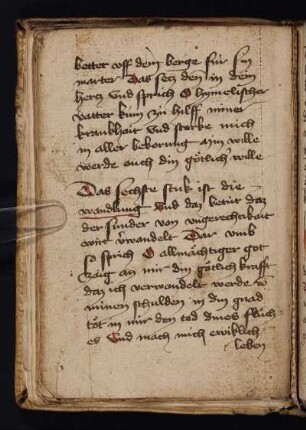 bettet vff dem berge für sin
marter Das setz den in dein
hertz Vnd sprich O hymelischer
vatter kum zu hilff miner
krankhait Vnd sterke mich
in aller bekerung
werde ouch din götlich wille
Das sechste stuk ist die
wandlung Vnd daz betüt daz
der sünder von vngerechtikait
wirt verwandelt Dar vmb
so sprich O allmächtiger got
zaig an mir din götlich krafft
daz ich verwandelt werde vō
minen schulden in din gnad
töt in mir den tod dines
es Vnd mach mich ewiklich
leben